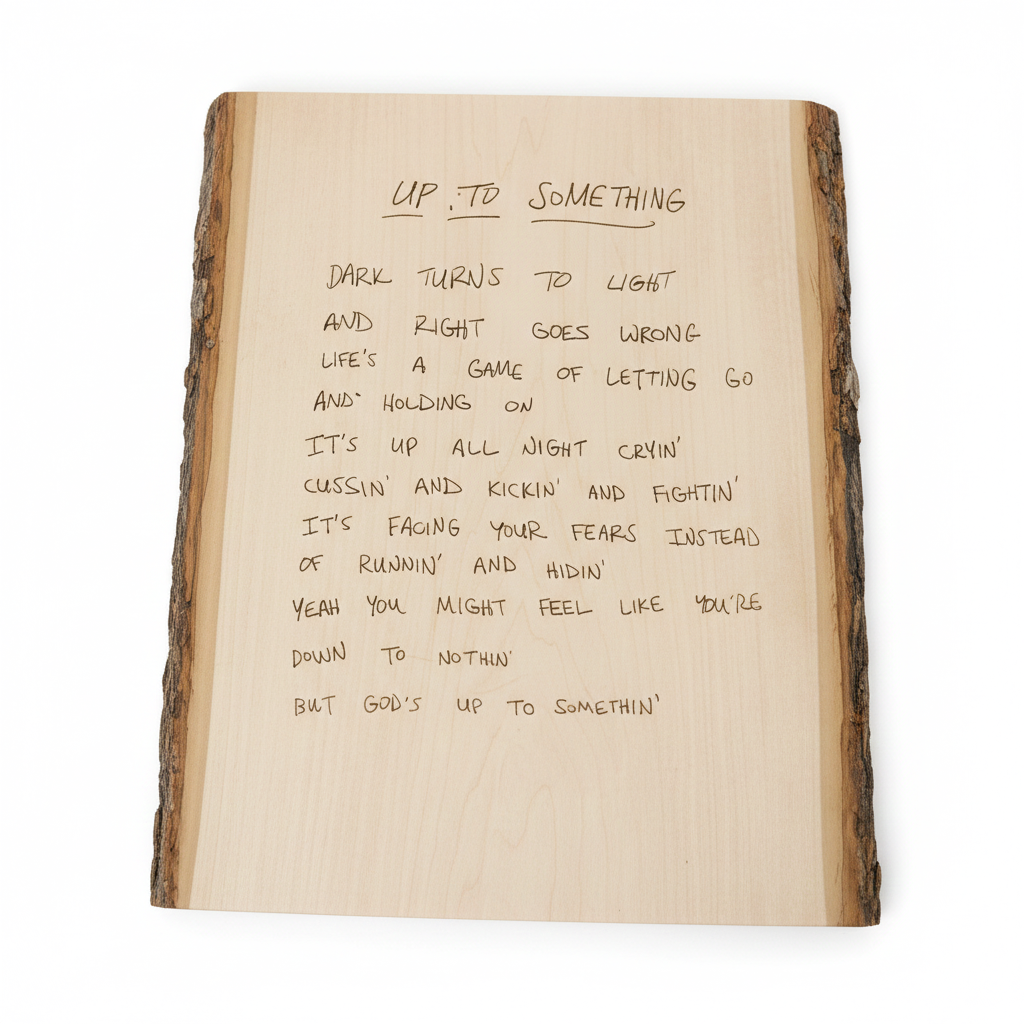 UP TO SOMETHING
DARK TURNS TO LIGHT
AND RIGHT GOES WRONG
LIFE'S A GAME OF LETTING GO
AND HOLDING ON
IT'S UP ALL NIGHT CRYIN'
CUSSIN' AND KICKIN' AND FIGHTIN'
IT'S FACING YOUR FEARS INSTEAD
OF RUNNIN' AND HIDIN'
YEAH YOU MIGHT FEEL LIKE YOU'RE
DOWN TO NOTHIN'
BUT GOD'S UP TO SOMETHIN'